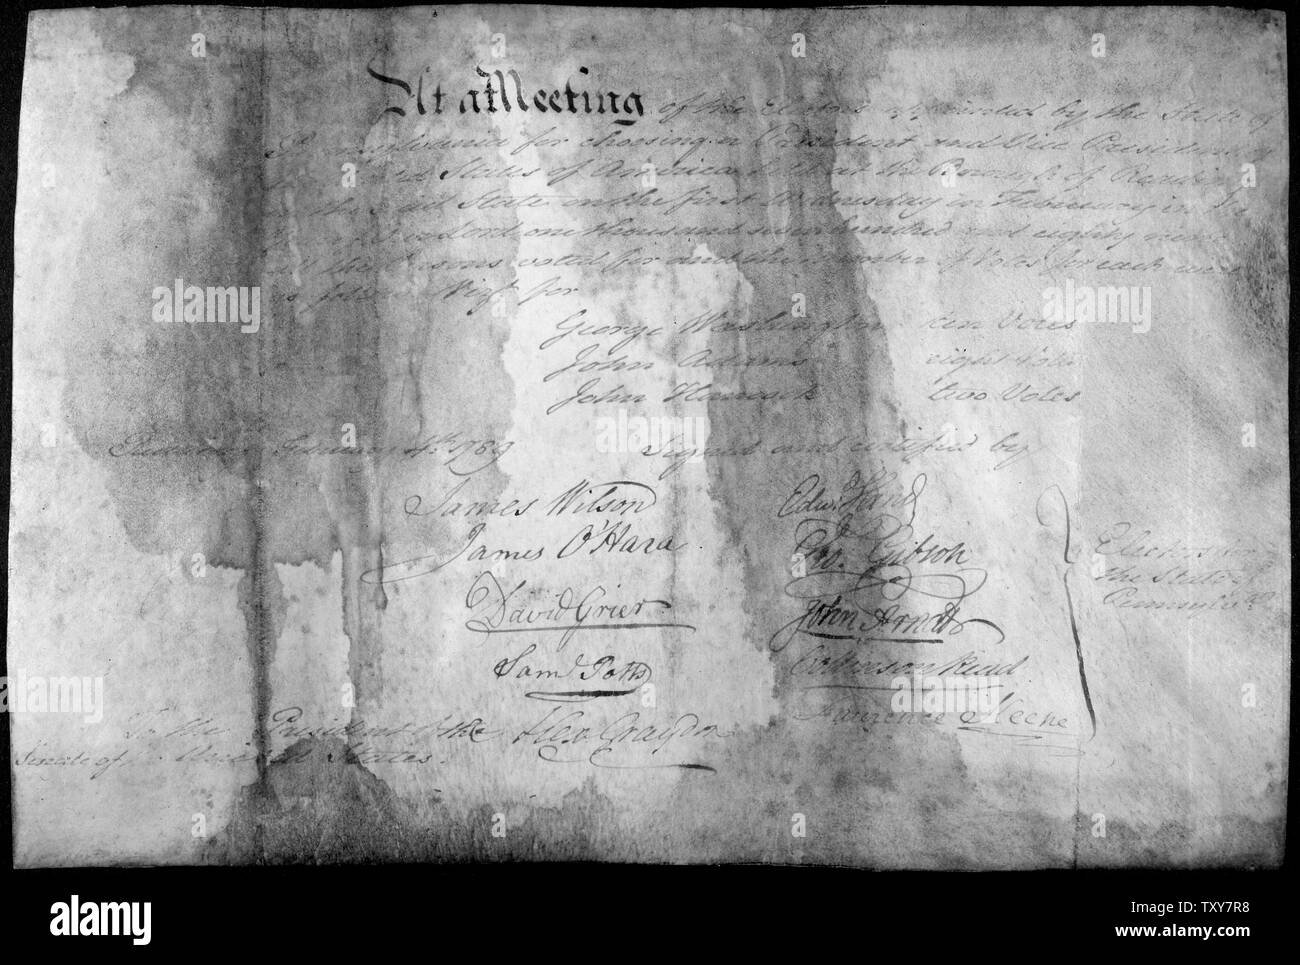 At a Meeting of the Electors appointed by the State of
Pennsylvania for choosing a President and Vice President of
the United States of America held at the Borough of Reading
in the said State on the first Wednesday in February in the
year of our Lord one thousand seven hundred and eighty nine
all the Persons voted for and the number of Votes for each were
as follow Vizt. for
George Washington ten Votes
John Adams eight Votes
John Hancock two Votes
Reading February 4th. 1789 Signed and certified by
James Wilson
James O'Hara
David Grier
Saml Potts
Alexr Graydon
Edwd Hand
Geo. Gibson
John Arndt
Collinson Read
Laurence Keene
Electors
the State of
Pennsylva
To the President of the
Senate of United States.
alamy
Image ID: TXY7R8
www.alamy.com